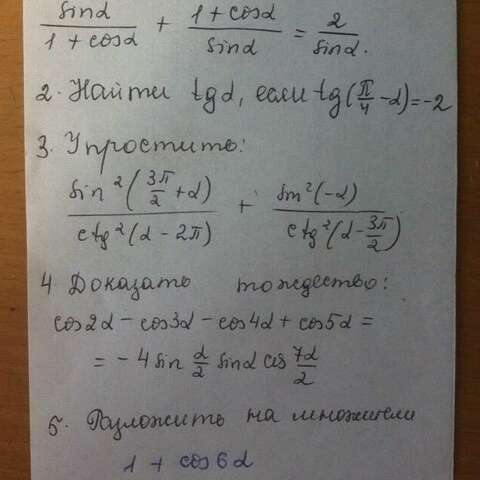 sinα/(1 + cosα) + (1 + cosα)/sinα = 2/sinα.
2. Найти tgα, если tg(π/4 - α) = -2
3. Упростить:
sin²(3π/2 + α)/ctg²(α - 2π) + sin²(-α)/ctg²(α - 3π/2)
4 Доказать тождество:
cos2α - cos3α - cos4α + cos5α =
= - 4 sin α/2 sinα cos 7α/2
5. Разложить на множители
1 + cos6α